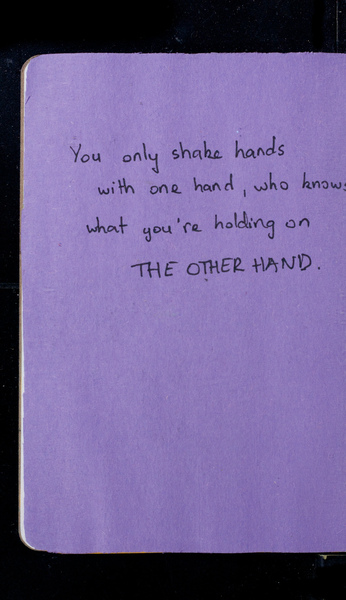 You only shake hands
with one hand, who knows
what you're holding on
THE OTHER HAND.